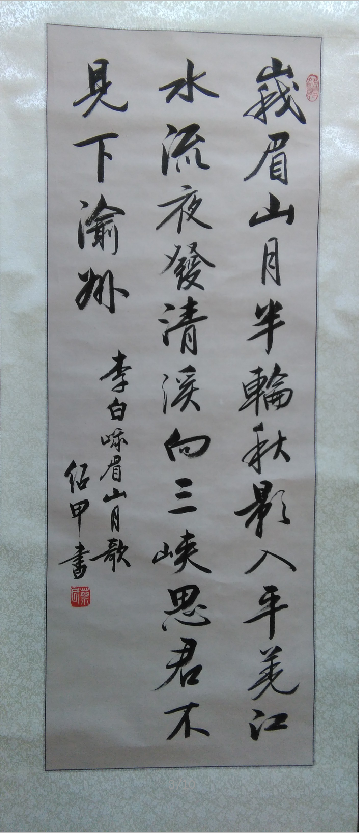 峩眉山月半輪秋影入平羌江
水流夜發清溪向三峽思君不
見下渝州
李白峩眉山月歌
佀甲書